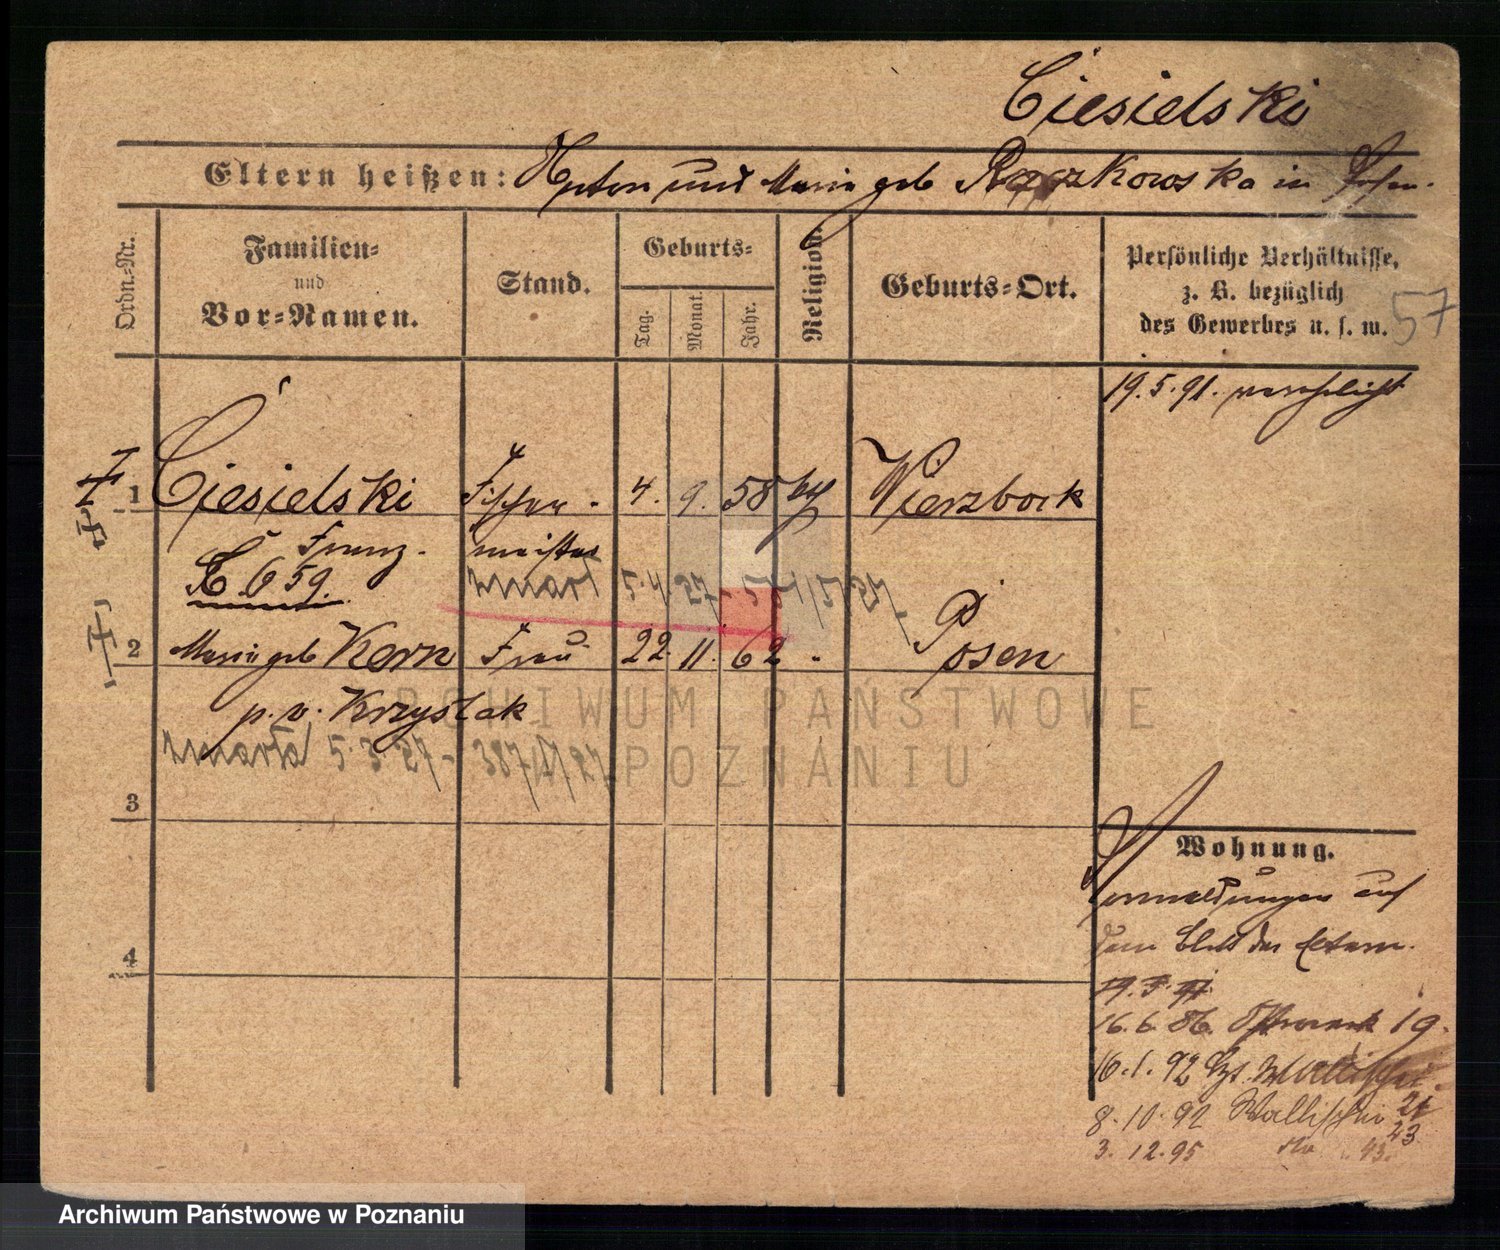 Ciesielski
Eltern heißen: Anton und Maria geb Raczkowska in Posen.
Ordn.-Nr.
Familien=
und
Vor=Namen.
Stand.
Geburts=
Tag.
Monat.
Jahr.
Religion.
Geburts=Ort.
Persönliche Verhältnisse,
z. B. bezüglich
des Gewerbes u. s. w.
57
19.5.91. verehelicht
1 Ciesielski Fischer- 4. 9. 58 kth Wierzbock
Franz. meister
K. 659.
zmarł 5.4.37-
2 Maria geb Kern Frau 22. 11. 62 Posen
p. v. Krzyslak
zmarła 5.3.27- 387/4/27
3
4
Wohnung.
Vormeldungen auf
dem Blatt der Eltern.
19.5.91.
16.6.86. Ostrowek 19.
16.1.92 Wallischei
8.10.92 Wallischei 21
23
3.12.95 do 43.
ARCHIWUM PAŃSTWOWE
POZNANIU
Archiwum Państwowe w Poznaniu